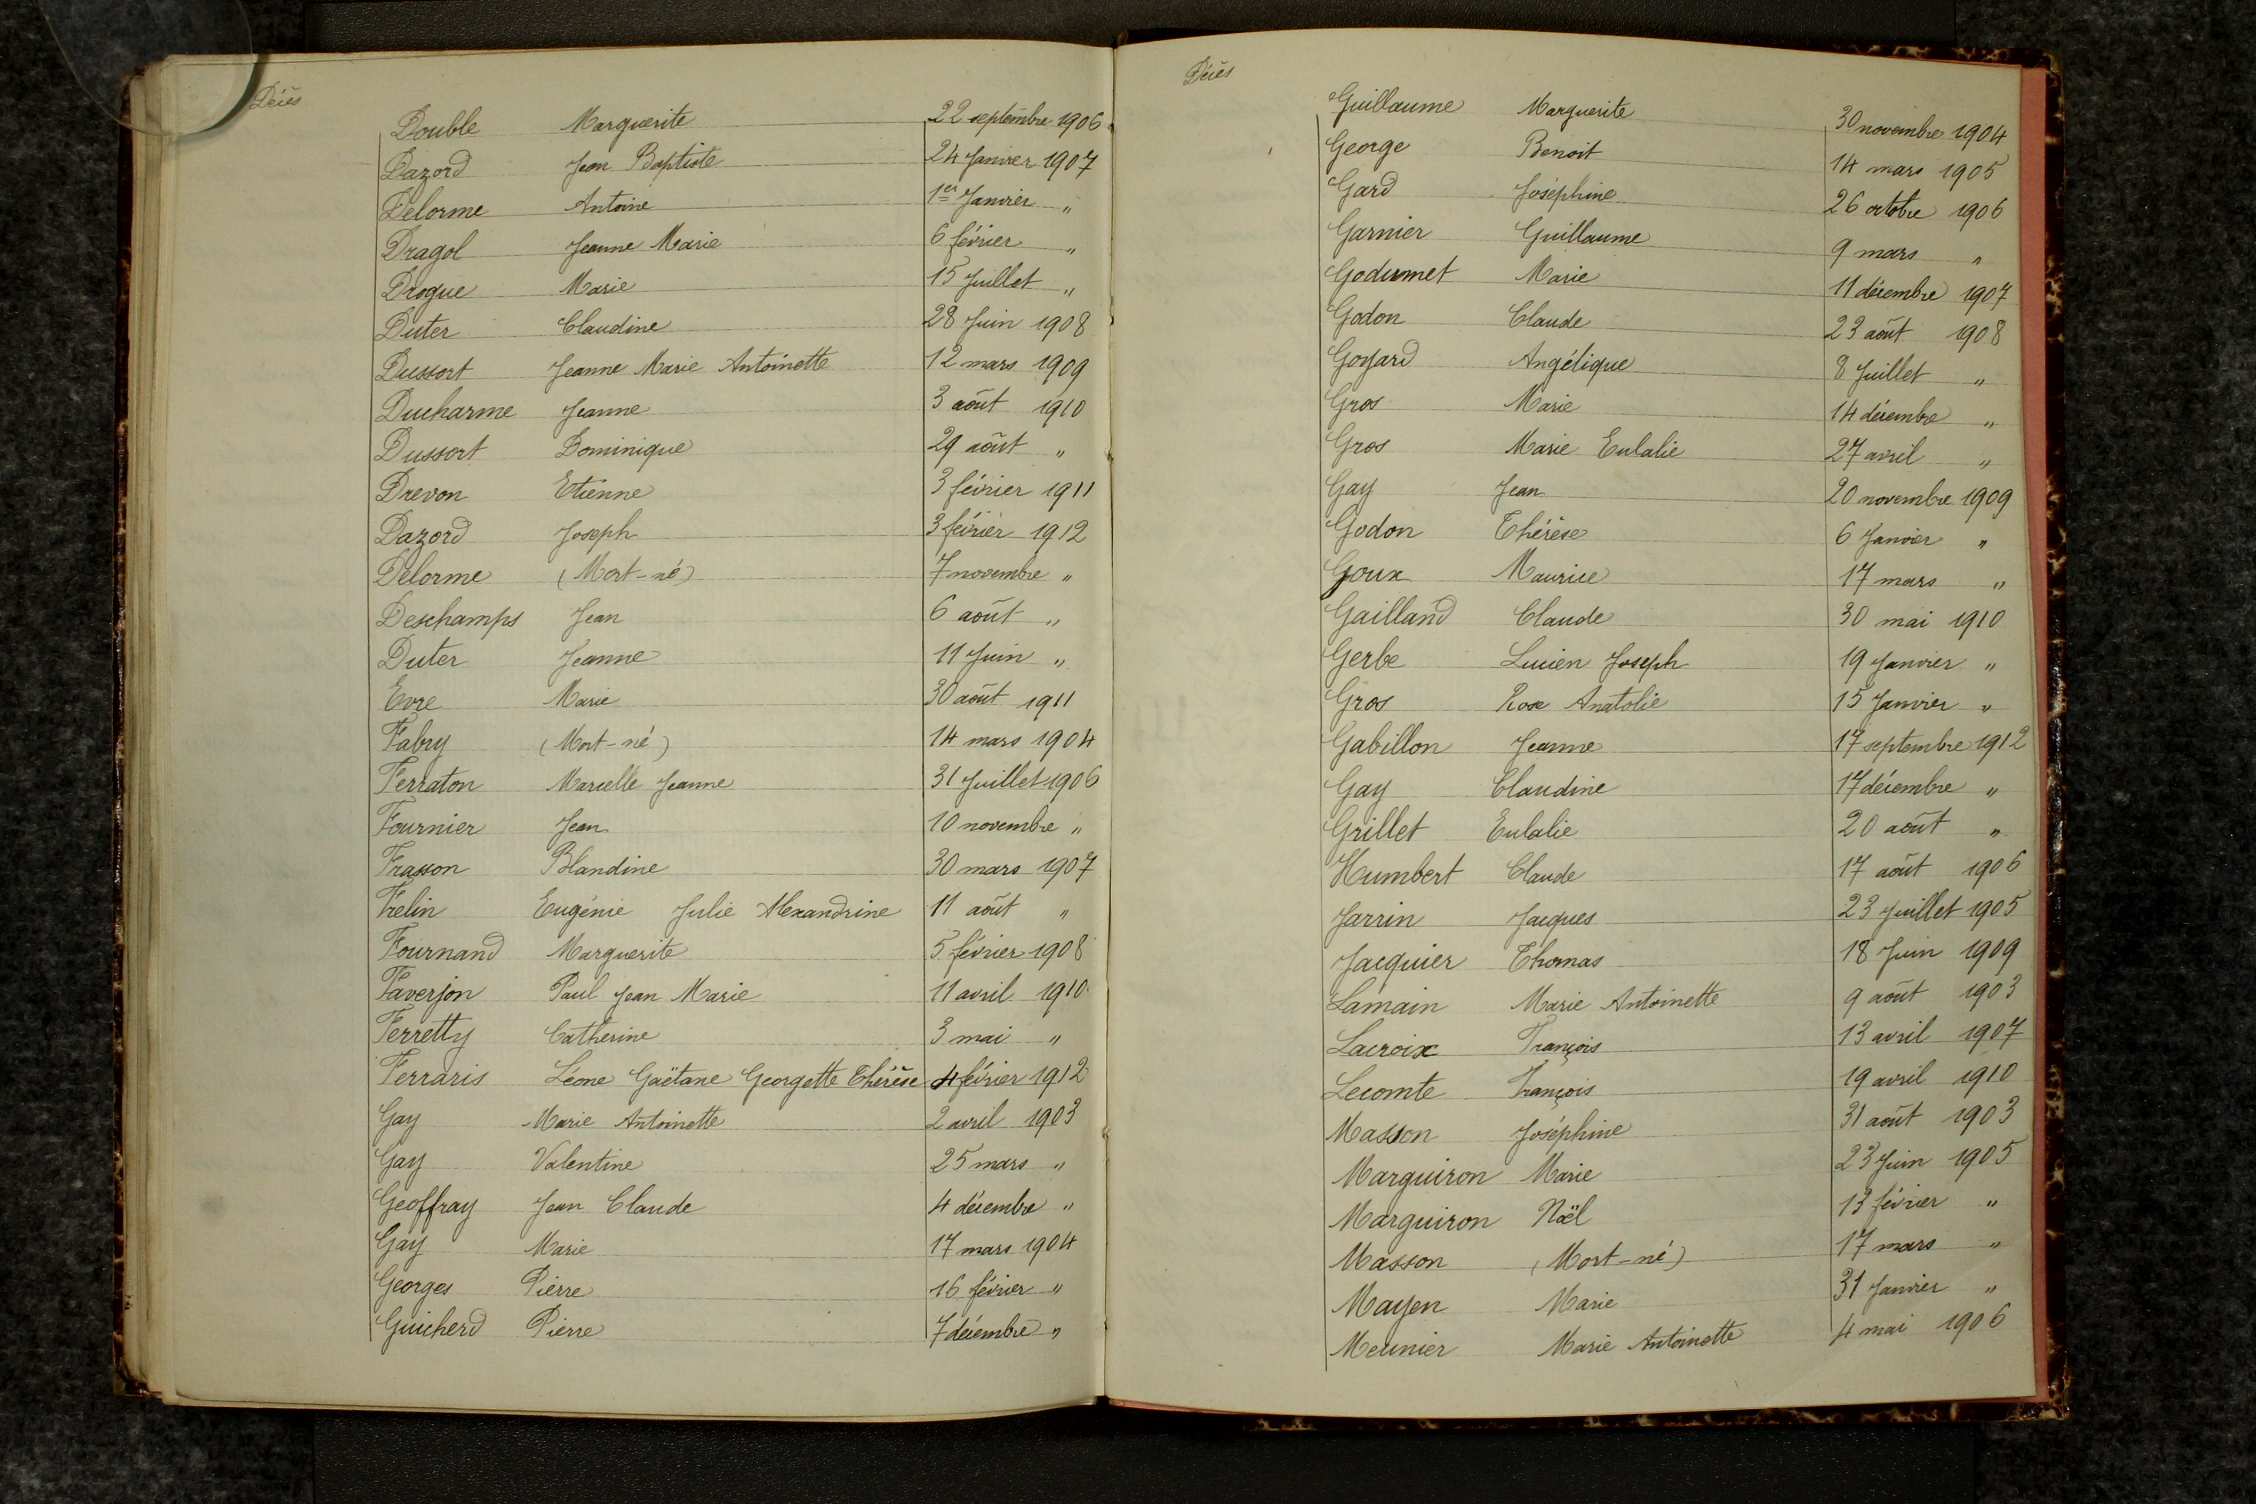 Décès
Double Marguerite 22 septembre 1906
Dazord Jean Baptiste 24 Janvier 1907
Delorme Antoine 1er Janvier "
Dragol Jeanne Marie 6 février "
Drogue Marie 15 Juillet "
Duter Claudine 28 Juin 1908
Dussort Jeanne Marie Antoinette 12 mars 1909
Ducharme Jeanne 3 août 1910
Dussort Dominique 29 août "
Drevon Etienne 3 février 1911
Dazord Joseph 3 février 1912
Delorme (Mort-né) 7 novembre "
Deschamps Jean 6 août "
Duter Jeanne 11 Juin "
Evre Marie 30 août 1911
Fabry (Mort-né) 14 mars 1904
Ferraton Marcelle Jeanne 31 Juillet 1906
Fournier Jean 10 novembre "
Frasson Blandine 30 mars 1907
Felin Eugénie Julie Alexandrine 11 août "
Fournand Marguerite 5 février 1908
Faverjon Paul Jean Marie 11 avril 1910
Ferretty Catherine 3 mai "
Ferraris Léone Gaëtane Georgette Thérèse 4 février 1912
Gay Marie Antoinette 2 avril 1903
Gay Valentine 25 mars "
Geoffray Jean Claude 4 décembre "
Gay Marie 17 mars 1904
Georges Pierre 16 février "
Guicherd Pierre 7 décembre "
Décès
Guillaume Marguerite 30 novembre 1904
George Benoit 14 mars 1905
Gard Joséphine 26 octobre 1906
Garnier Guillaume 9 mars "
Godumet Marie 11 décembre 1907
Godon Claude 23 août 1908
Goyard Angélique 8 Juillet "
Gros Marie 14 décembre "
Gros Marie Eulalie 27 avril "
Gay Jean 20 novembre 1909
Godon Thérèse 6 Janvier "
Goux Maurice 17 mars "
Gailland Claude 30 mai 1910
Gerbe Lucien Joseph 19 Janvier "
Gros Rose Anatolie 15 Janvier "
Gabillon Jeanne 17 septembre 1912
Gay Claudine 17 décembre "
Grillet Eulalie 20 août "
Humbert Claude 17 août 1906
Jarrin Jacques 23 Juillet 1905
Jacquier Thomas 18 Juin 1909
Lamain Marie Antoinette 9 août 1903
Lacroix François 13 avril 1907
Lecomte François 19 avril 1910
Masson Joséphine 31 août 1903
Marguiron Marie 23 Juin 1905
Marguiron Noël 13 février "
Masson (Mort-né) 17 mars "
Mayen Marie 31 Janvier "
Meunier Marie Antoinette 4 mai 1906